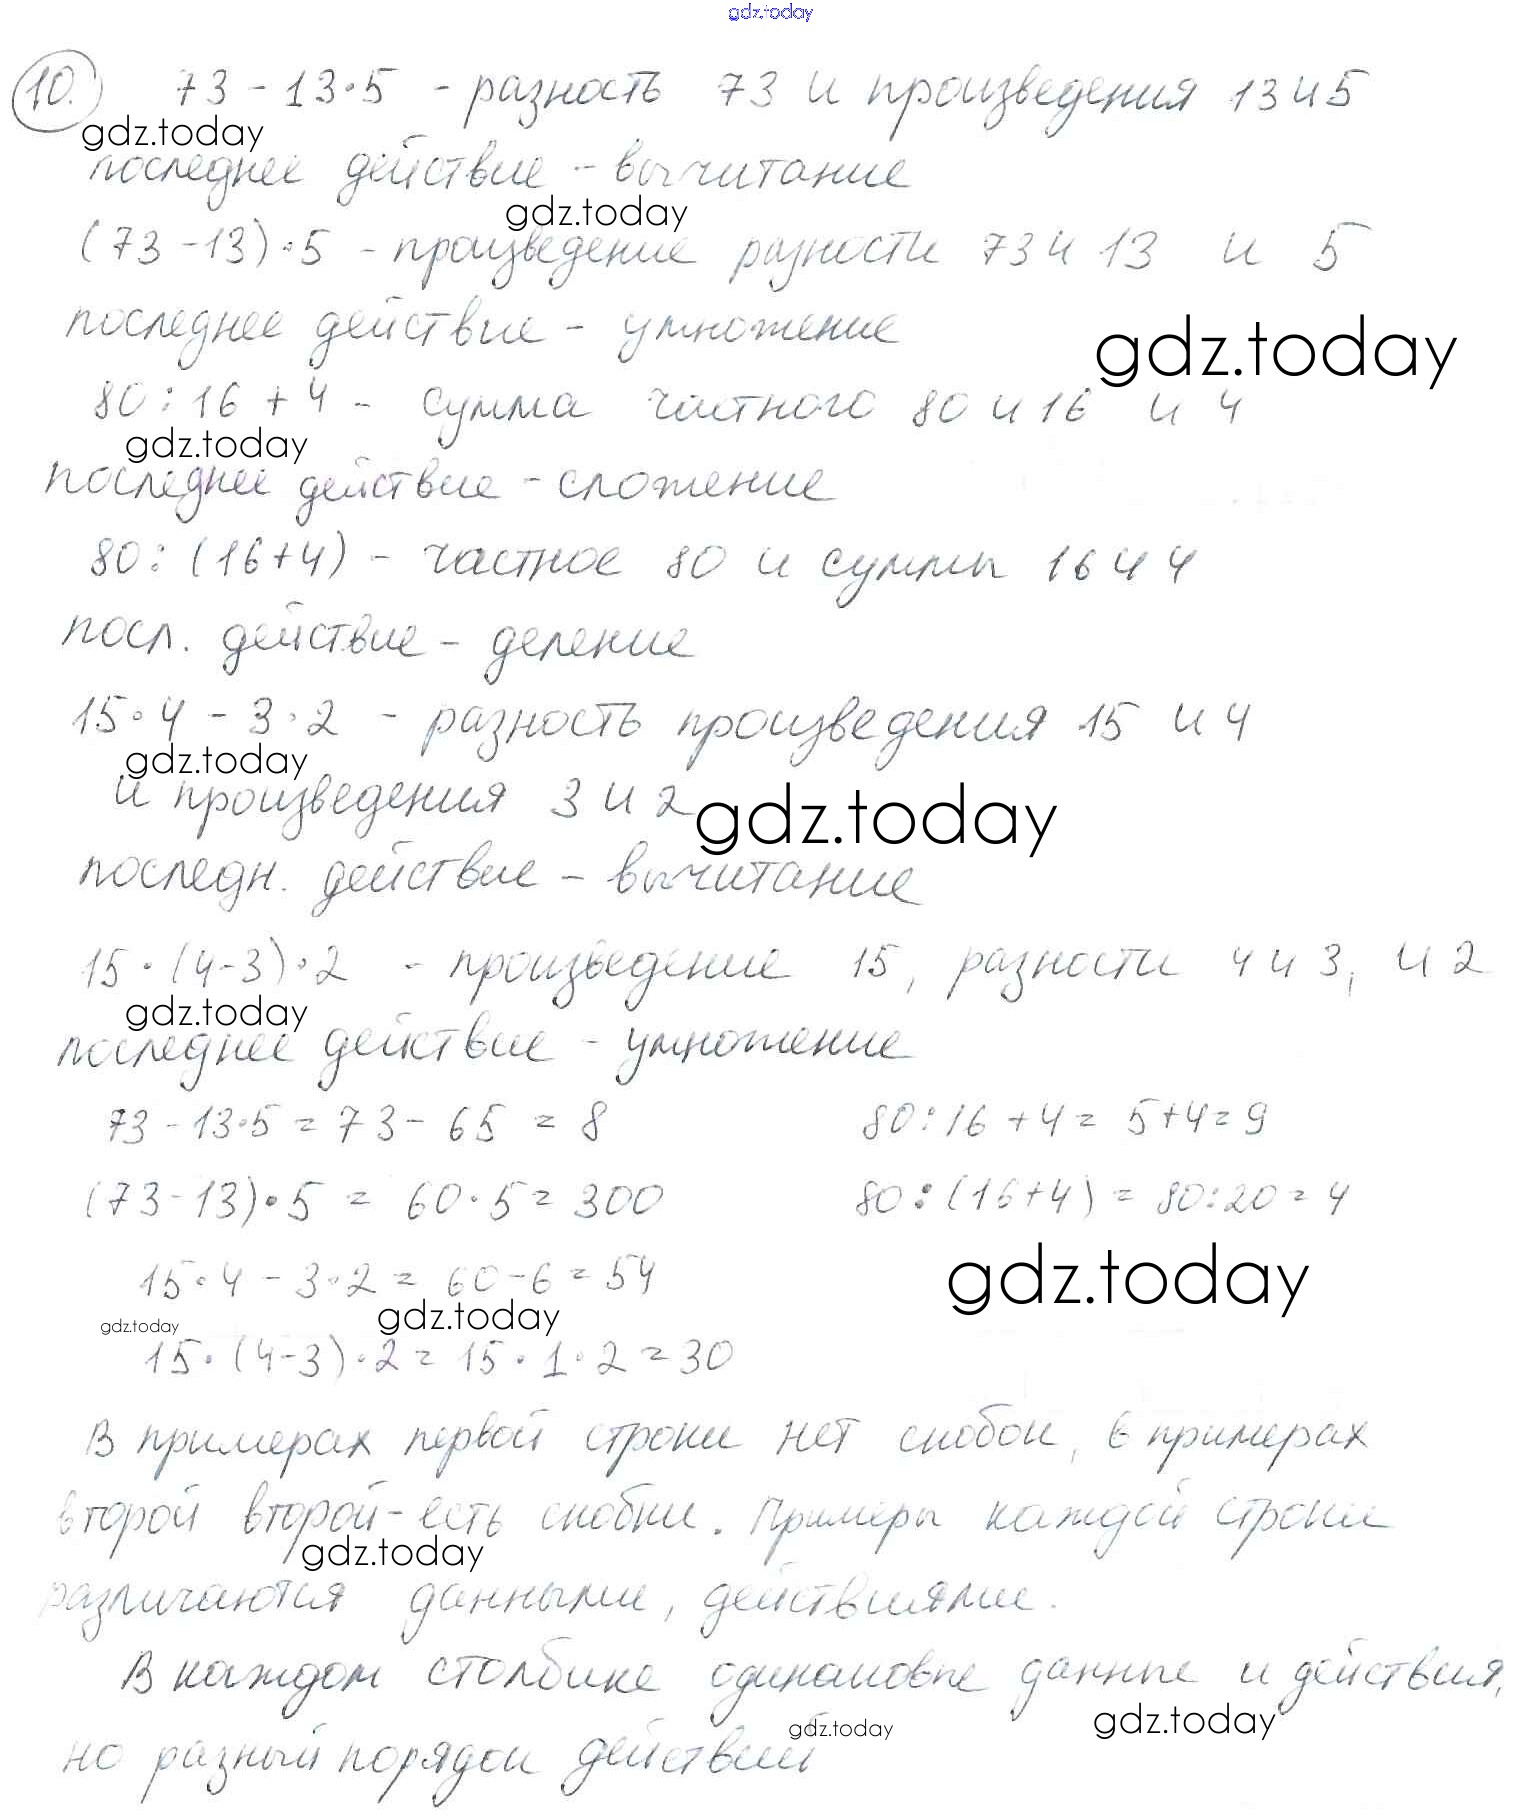 gdz.today
10. 73 - 13·5 - разность 73 и произведения 13 и 5
gdz.today
последнее действие - вычитание
gdz.today
(73 - 13)·5 - произведение разности 73 и 13 и 5
последнее действие - умножение
gdz.today
80:16 + 4 - сумма частного 80 и 16 и 4
gdz.today
последнее действие - сложение
80:(16+4) - частное 80 и суммы 16 и 4
посл. действие - деление
15·4 - 3·2 - разность произведения 15 и 4
gdz.today
и произведения 3 и 2
gdz.today
последн. действие - вычитание
15·(4-3)·2 - произведение 15, разности 4 и 3, и 2
gdz.today
последнее действие - умножение
73 - 13·5 = 73 - 65 = 8 80:16 + 4 = 5+4=9
(73 - 13)·5 = 60·5 = 300 80:(16+4) = 80:20 = 4
15·4 - 3·2 = 60-6 = 54
gdz.today
gdz.today
gdz.today
15·(4-3)·2 = 15·1·2 = 30
В примерах первой строки нет скобок, в примерах
второй второй - есть скобки. Примеры каждой строки
gdz.today
различаются данными, действиями.
В каждом столбике одинаковые данные и действия,
gdz.today
gdz.today
но разный порядок действий